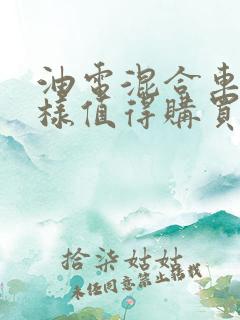 油電混合車
樣值得購買
拾柒姑姑
未經同意禁止轉載